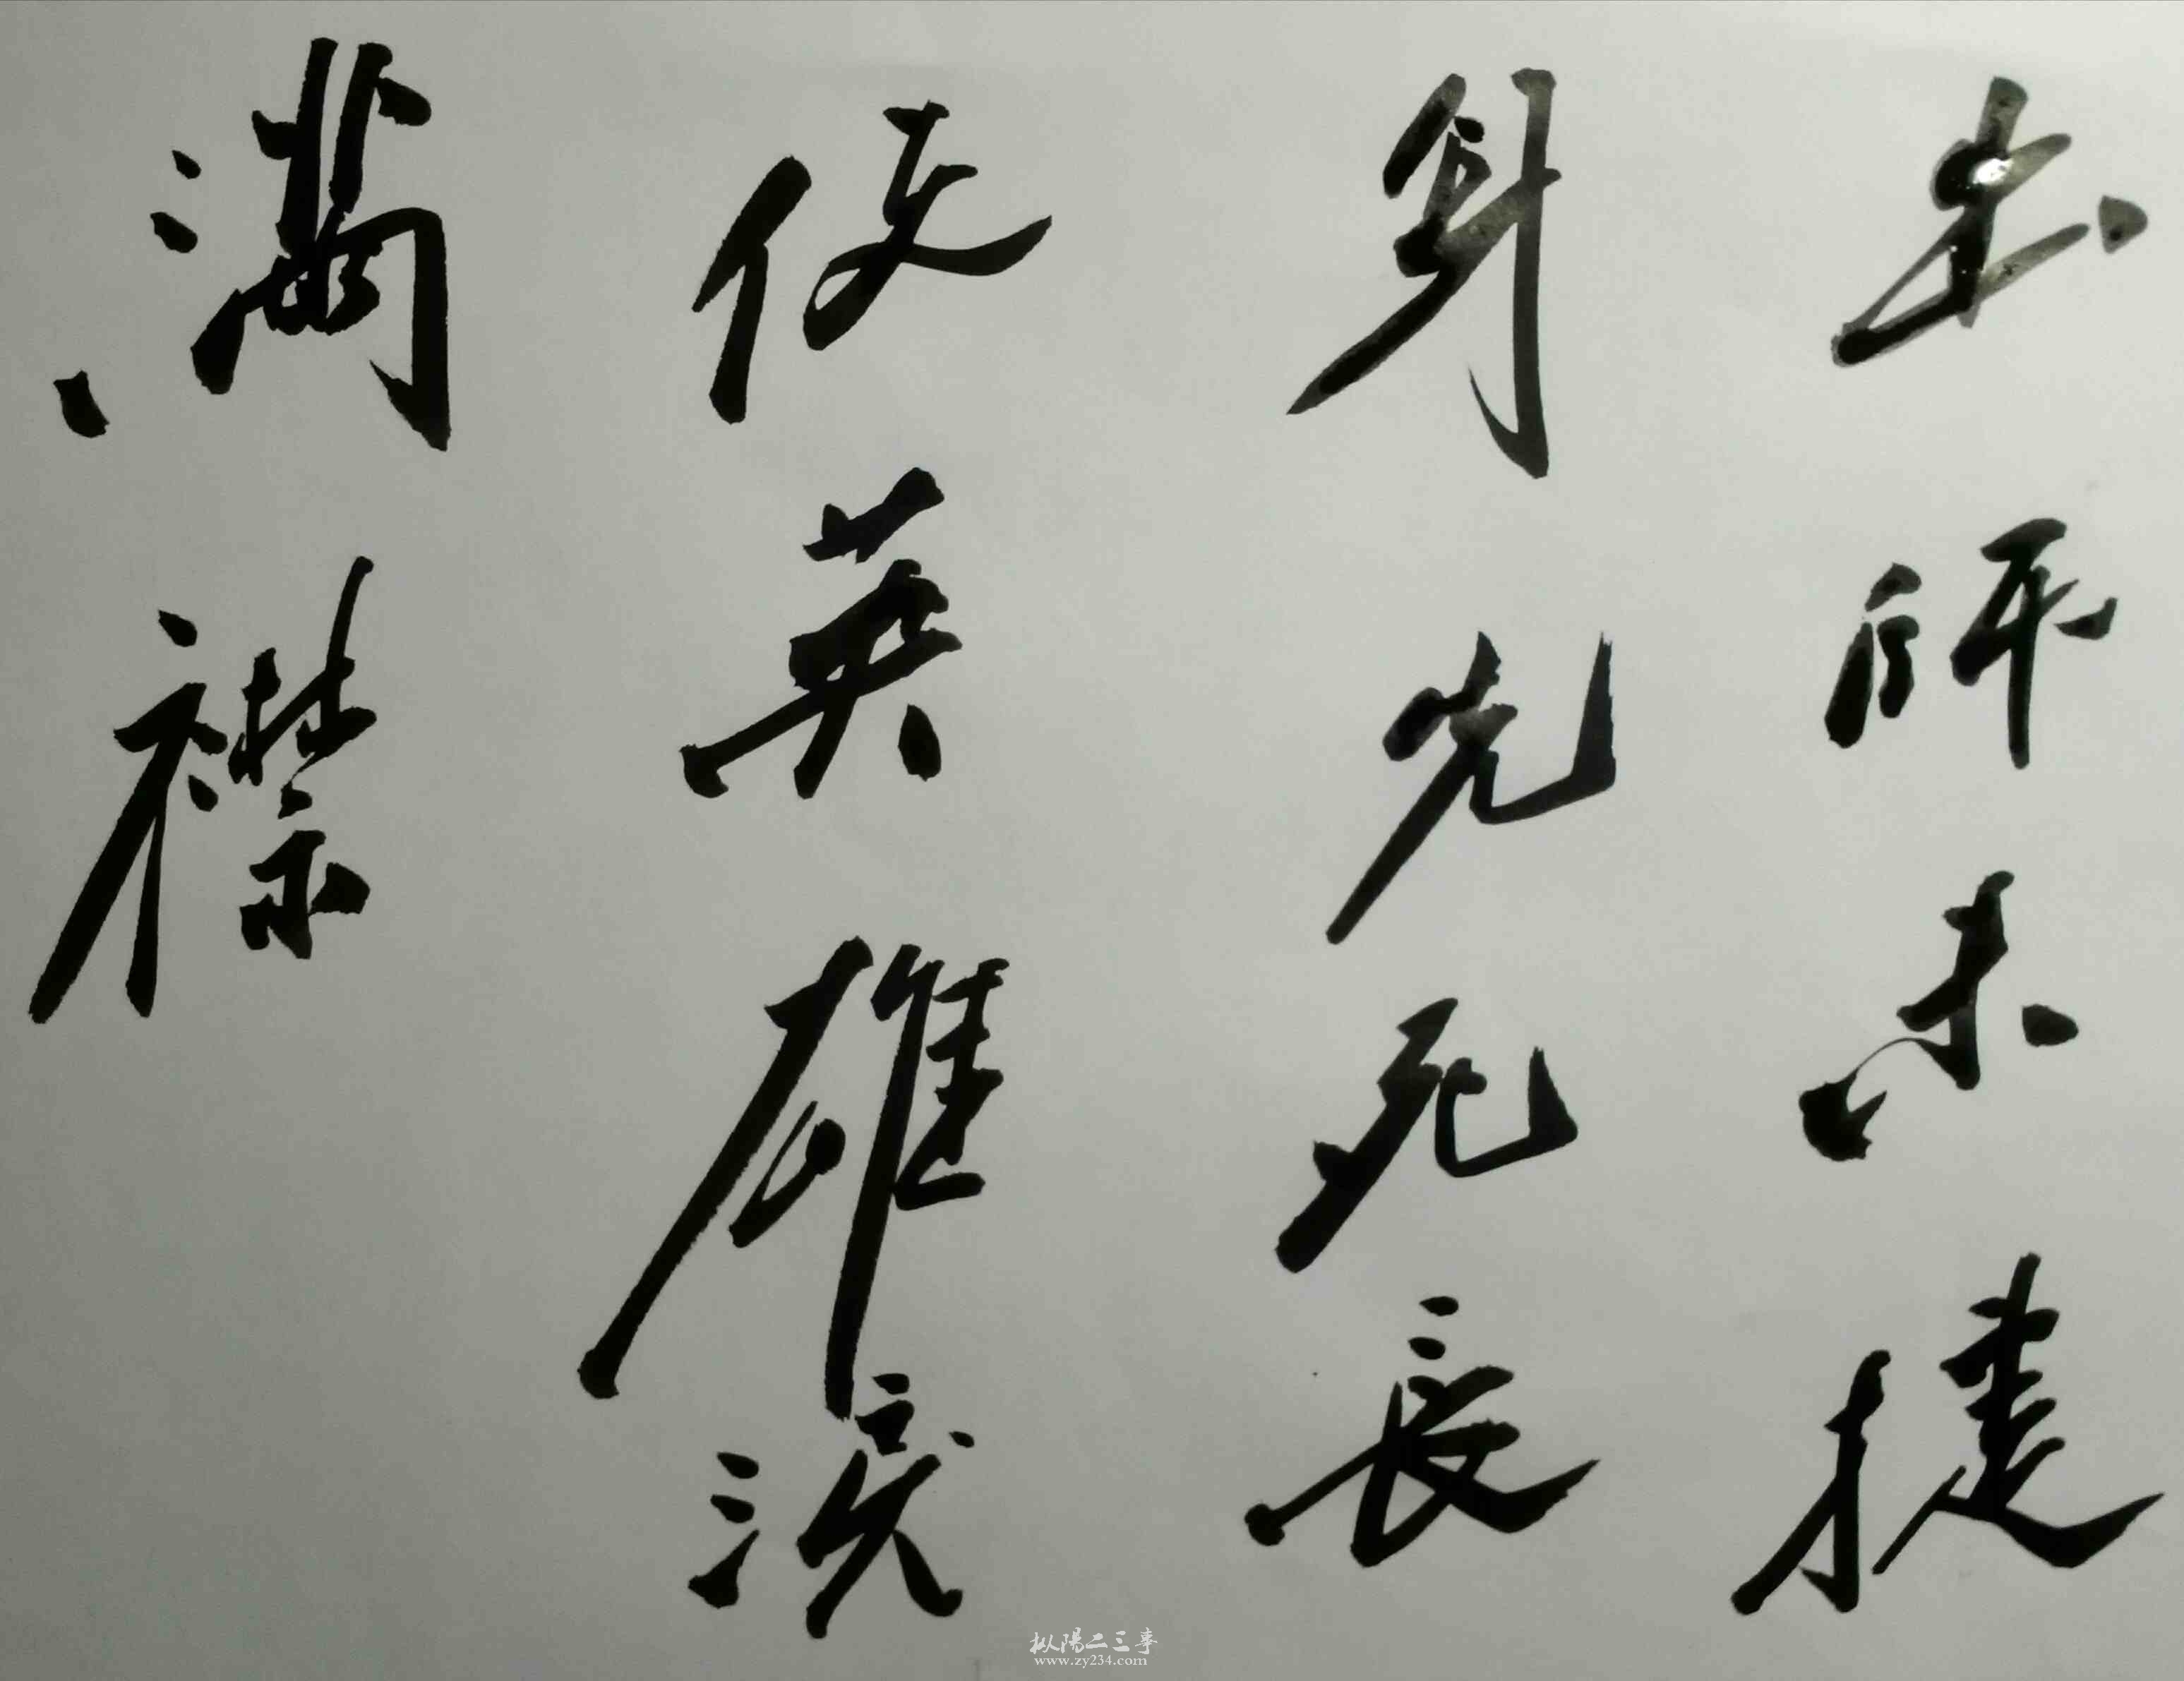 出師未捷
身先死長
使英雄淚
滿襟
枞陽二三事
www.zy234.com